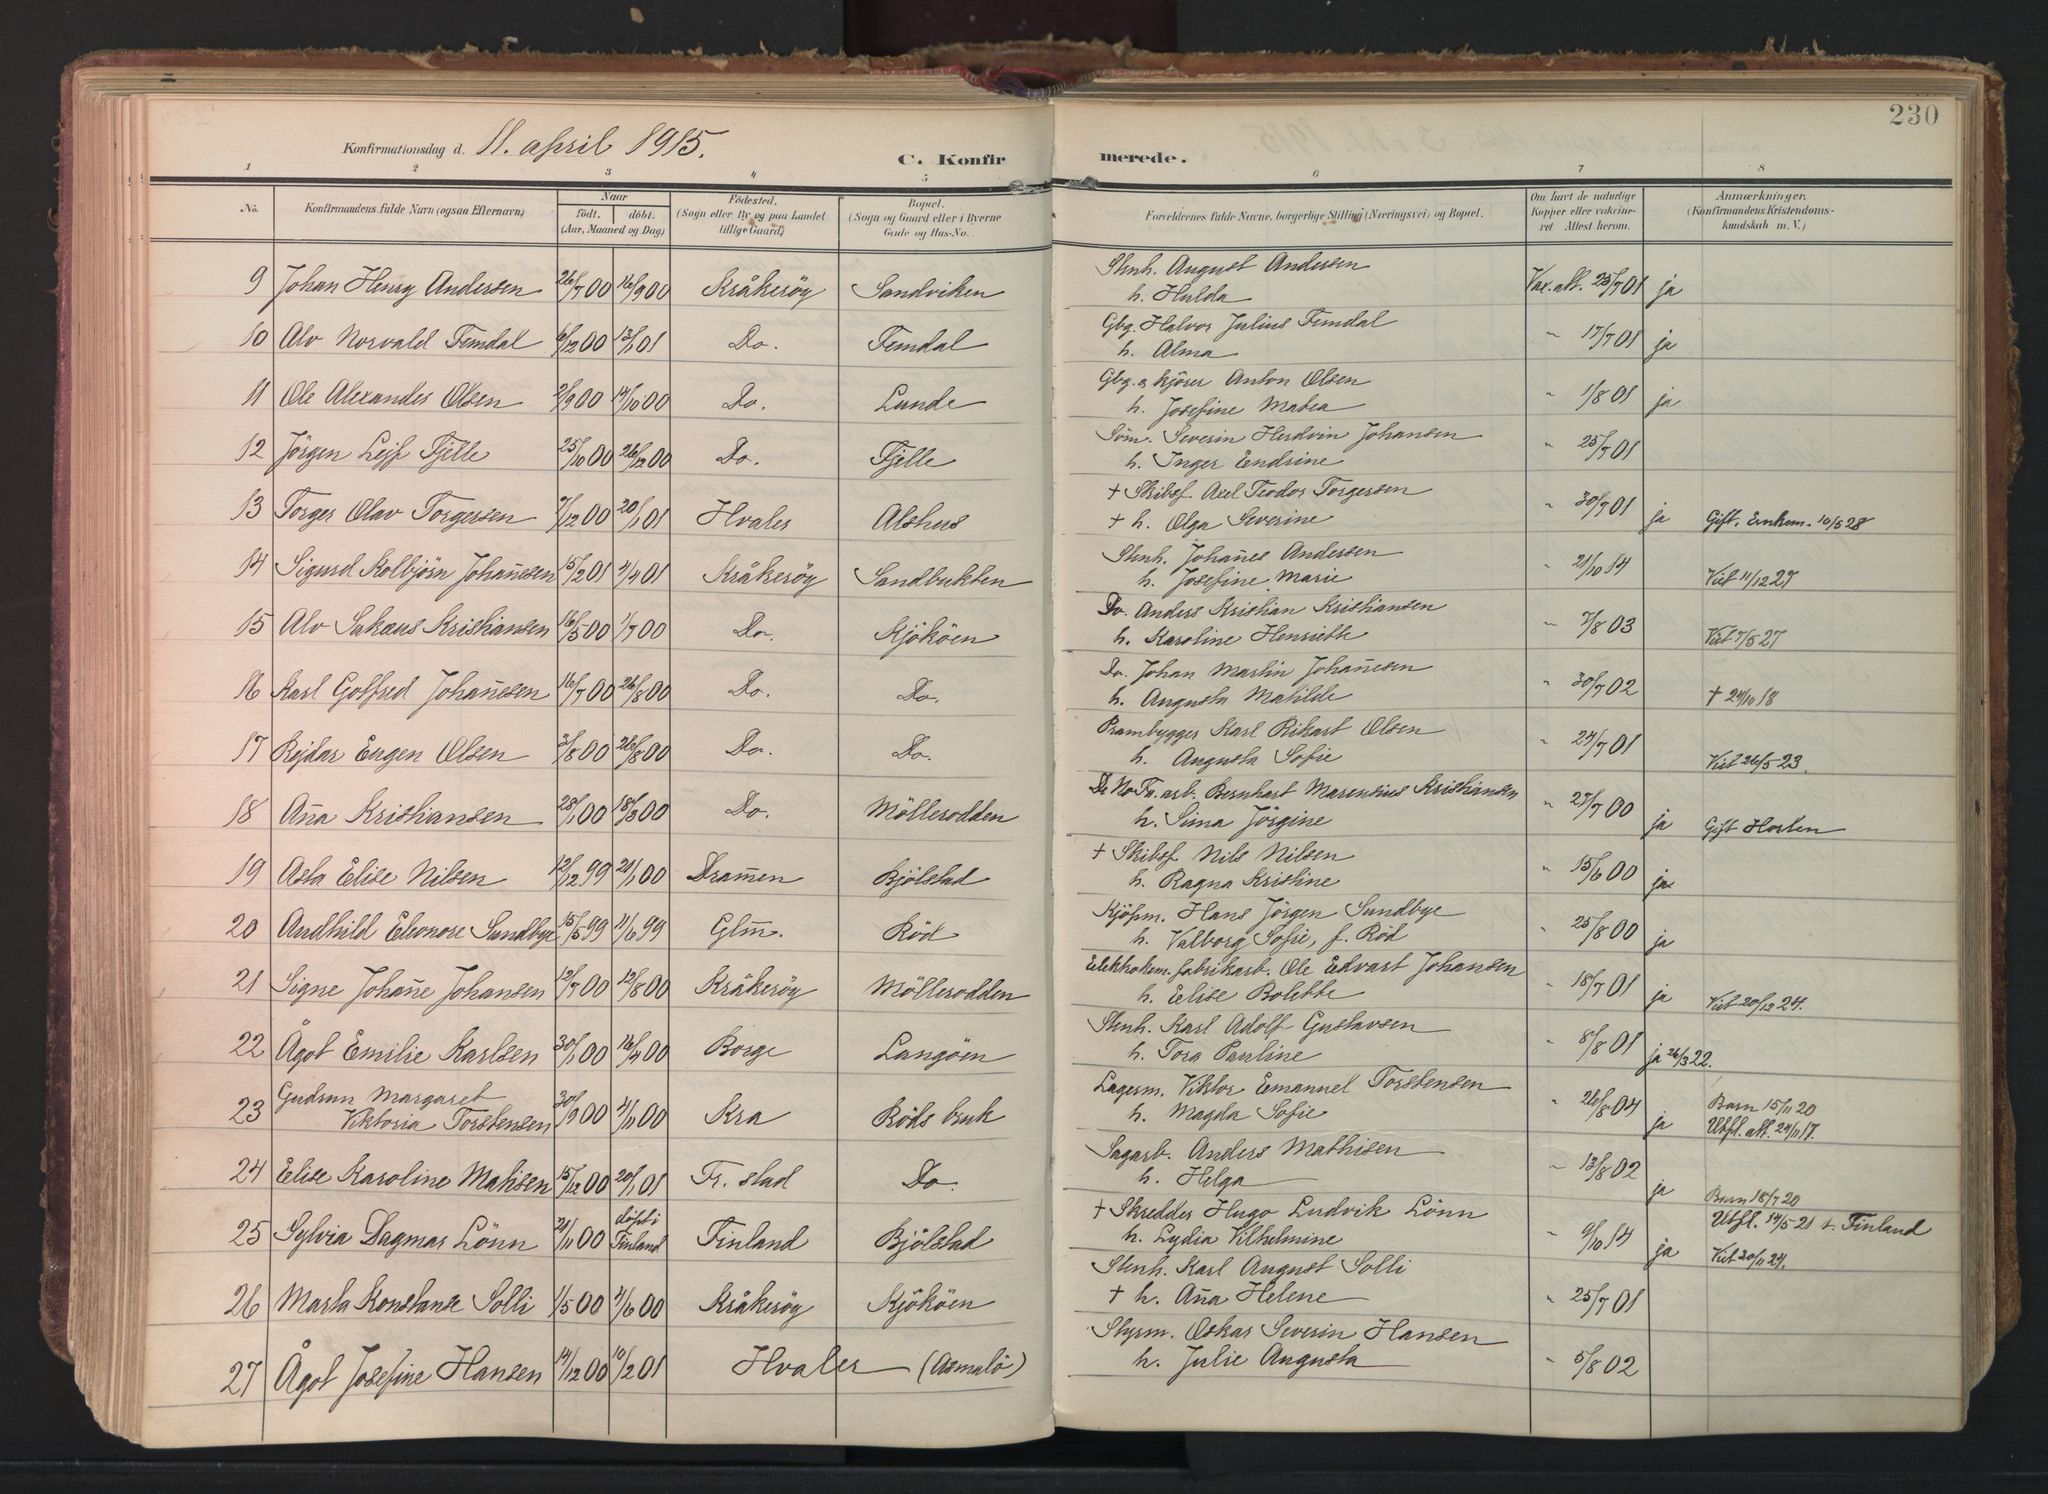 230
Konfirmationsdag d. 11. april 1915.
C. Konfirmerede.
1 2 3 4 5 6 7 8
No. Konfirmandens fulde Navn (ogsaa Efternavn) Naar født. døbt. (Aar, Maaned og Dag) Fødested. (Sogn eller By og paa Landet tillige Gaard) Bopæl. (Sogn og Gaard eller i Byerne Gade og Hus-No. Forældrenes fulde Navne, borgerlige Stilling (Næringsvei) og Bopæl. Om havt de naturlige Kopper eller vakcineret Attest herom. Anmærkninger. (Konfirmandens Kristendomskundskab m. V.)
9 Johan Henry Andersen 26/7 00 16/9 00 Kråkeröy Sandviken Stenh. August Andersen h. Hulda Vax. att. 25/7 01 ja
10 Alv Norvald Femdal 6/12 00 13/1 01 Do. Femdal Gbg. Halvor Julius Femdal h. Alma " 17/7 01 ja
11 Ole Alexander Olsen 2/9 00 14/10 00 Do. Lunde Gbg. & kjörer Anton Olsen h. Josefine Mabea " 1/8 01 ja
12 Jörgen Leif Fjelle 25/10 00 26/12 00 Do. Fjelle Söm. Severin Herdvin Johansen h. Inger Endrine " 25/7 01
13 Torger Olav Torgersen 7/12 00 20/1 01 Hvaler Alshus + Skibsf Axel Teodor Torgersen + h. Olga Severine " 30/7 01 ja Gift. Enkem. 10/5 28
14 Sigurd Kolbjörn Johan̄esen 15/2 01 4/4 01 Kråkeröy Sandbukten Stenh. Johan̄es Andersen h. Josefine Marie " 21/10 14 Vit 11/12 27
15 Alv Sakæus Kristiansen 16/5 00 1/7 00 Do. Kjököen Do. Anders Kristian Kristiansen h. Karoline Henriette " 7/8 03 Vit 7/5 27
16 Karl Golfred Johan̄esen 16/7 00 26/8 00 Do. Do. Do. Johan Martin Johan̄esen h. Augusta Matilde " 30/7 02 + 24/10 18
17 Rejdar Eugen Olsen 3/8 00 26/8 00 Do. Do. Prambygger Karl Rikart Olsen h. Augusta Sofie " 24/7 01 Vit 26/5 23.
18 An̄a Kristiansen 28/1 00 18/3 00 Do. Möllerodden De No Fa. arb. Bernhart Marensius Kristiansen h. Sima Jörgine " 27/7 00 ja Gift Horten
19 Asta Elise Nilsen 12/12 99 21/1 00 Dram̄en Bjölstad + Skibsf Nils Nilsen h. Ragna Kristine " 15/6 00 ja
20 Audhild Eleonore Sundbye 15/5 99 11/6 99 Glm̄. Röd Kjöpm. Hans Jörgen Sundbye h. Valborg Sofie, f. Röd " 25/8 00 ja
21 Signe Johan̄e Johansen 12/7 00 12/8 00 Kråkeröy Möllerodden Elektrokem. fabrikarb. Ole Edvart Johansen h. Elise Bolette " 18/7 01 ja Vit 20/12 24.
22 Ågot Emilie Karlsen 30/1 00 16/4 00 Borge Langöen Stenh. Karl Adolf Gustavsen h. Tora Pauline " 8/8 01 ja 26/3 22.
23 Gudrun Margaret Viktoria Torstensen 30/9 00 4/11 00 Kra Röds bruk Lagerm. Viktor Emanuel Torstensen h. Magda Sofie " 26/8 04 ja Barn 15/11 20 Utfl. att. 24/11 17.
24 Elise Karoline Matisen 15/12 00 20/1 01 Fr. stad Do. Sagarb. Anders Mathisen h. Helga " 13/8 02 ja Barn 18/7 20
25 Sylvia Dagmar Lönn 21/11 00 döpt i Finland Finland Bjölstad + Skredder Hugo Ludvik Lönn h. Lydia Vilhelmine " 9/10 14 ja Utfl. 14/5 21 t. Finland Vit 20/11 24.
26 Marta Konstanse Solli 1/5 00 4/6 00 Kråkeröy Kjököen Stenh. Karl August Solli + h. An̄a Helene " 25/7 01
27 Ågot Josefine Hansen 14/12 00 10/2 01 Hvaler (Asmalö) Styrm. Oskar Severin Hansen h. Julie Augusta " 5/8 02